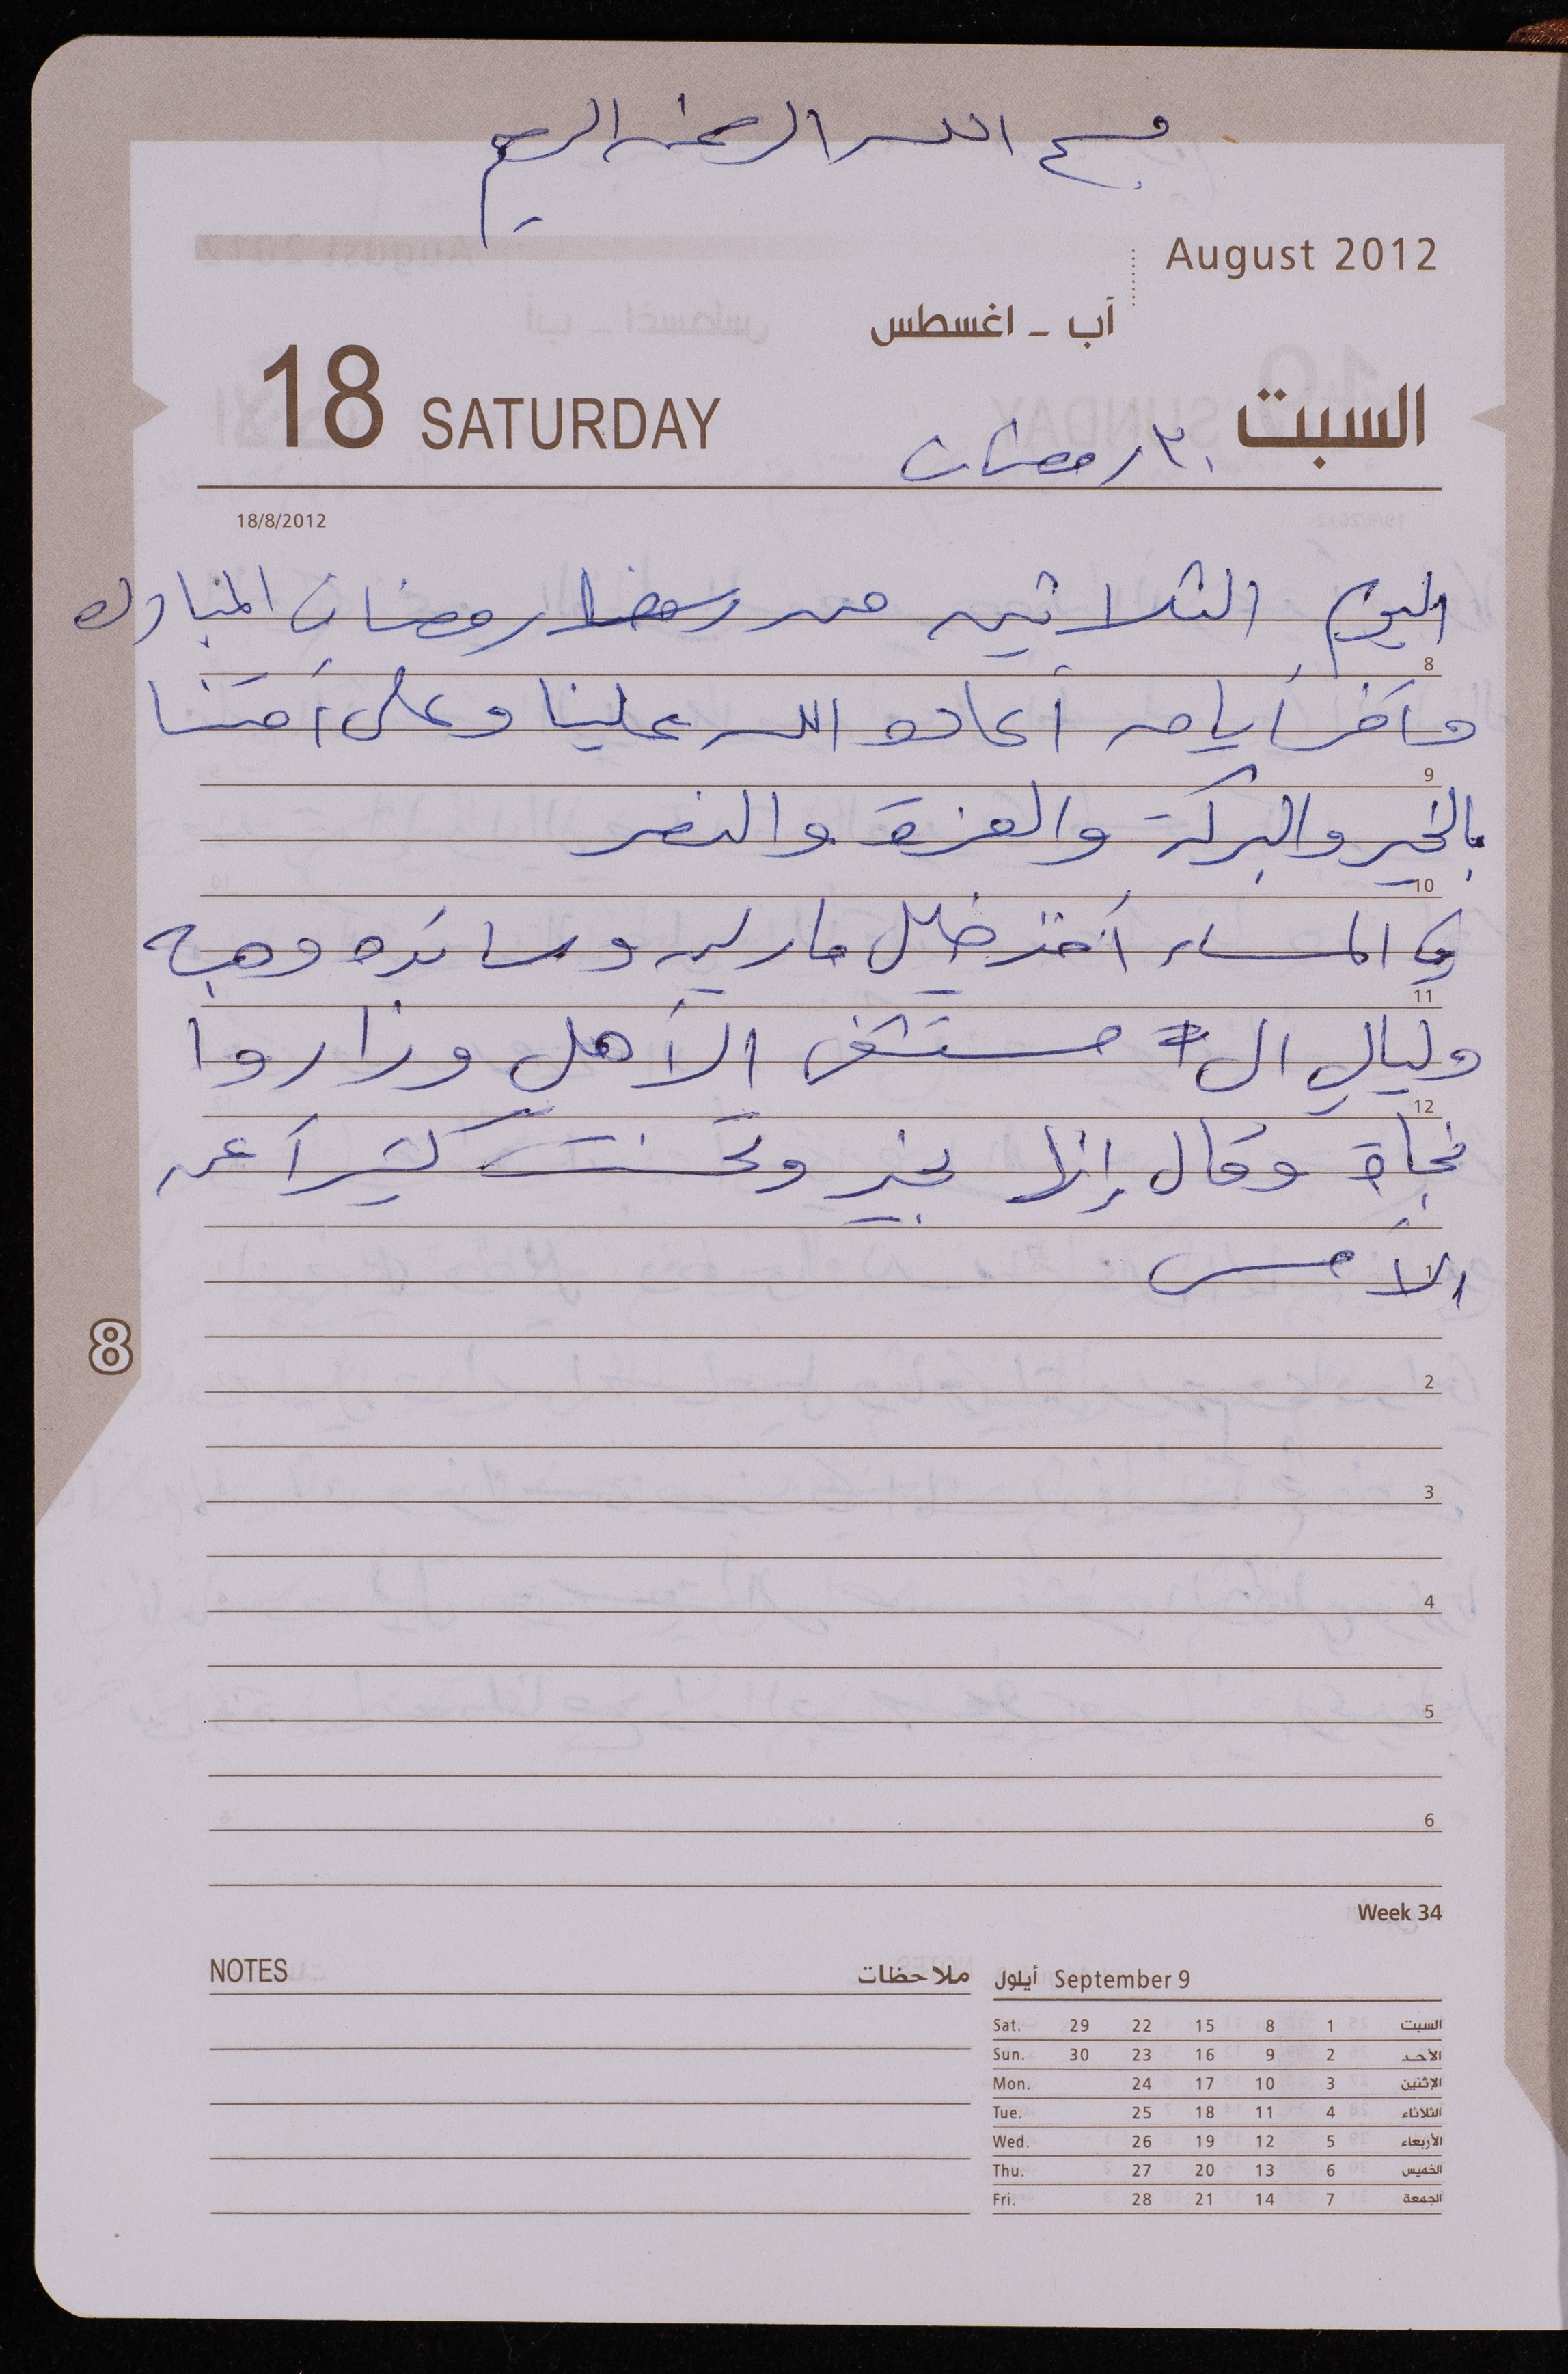 بسم الله الرحمن الرحيم
August 2012
آب - اغسطس
18 SATURDAY
السبت
٣٠ رمضان
18/8/2012
اليوم الثلاثين من رمضا رمضان المبارك
8
وآخر أيامه أعاده الله علينا وعلى أمتنا
9
بالخير والبركة والعزة والنصر
10
وفي المساء أخذ خليل مارليه وسائده وهبه
11
وليالي ال مستشفى الأهلي وزاروا
12
نجاة وقال إنها بخير وتحسنت كثيراً عن
الأمس
1
8
2
3
4
5
6
Week 34
NOTES ملاحظات
أيلول September 9
Sat. 29 22 15 8 1 السبت
Sun. 30 23 16 9 2 الأحد
Mon. 24 17 10 3 الإثنين
Tue. 25 18 11 4 الثلاثاء
Wed. 26 19 12 5 الأربعاء
Thu. 27 20 13 6 الخميس
Fri. 28 21 14 7 الجمعة